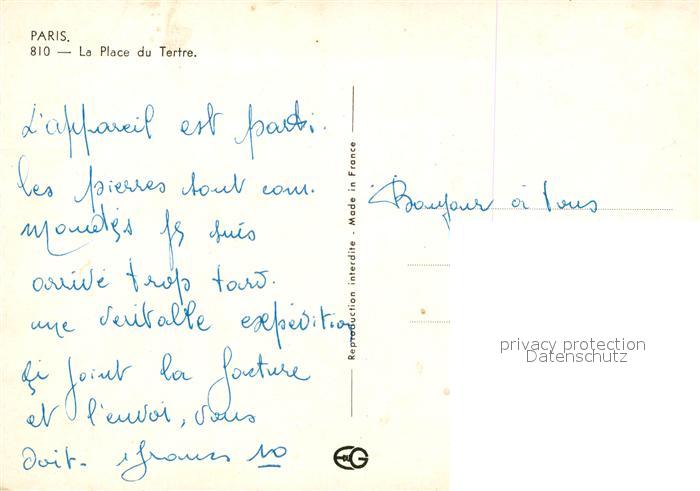 PARIS.
810 — La Place du Tertre.
L'appareil est parti.
les pierres sont com.
mandés je suis
arrivé trop tard.
une veritable expédition
çi joint la facture
et l'envoi, vous
doit - francs 10
Reproduction interdite - Made in France
Bonjour à tous
privacy protection
Datenschutz